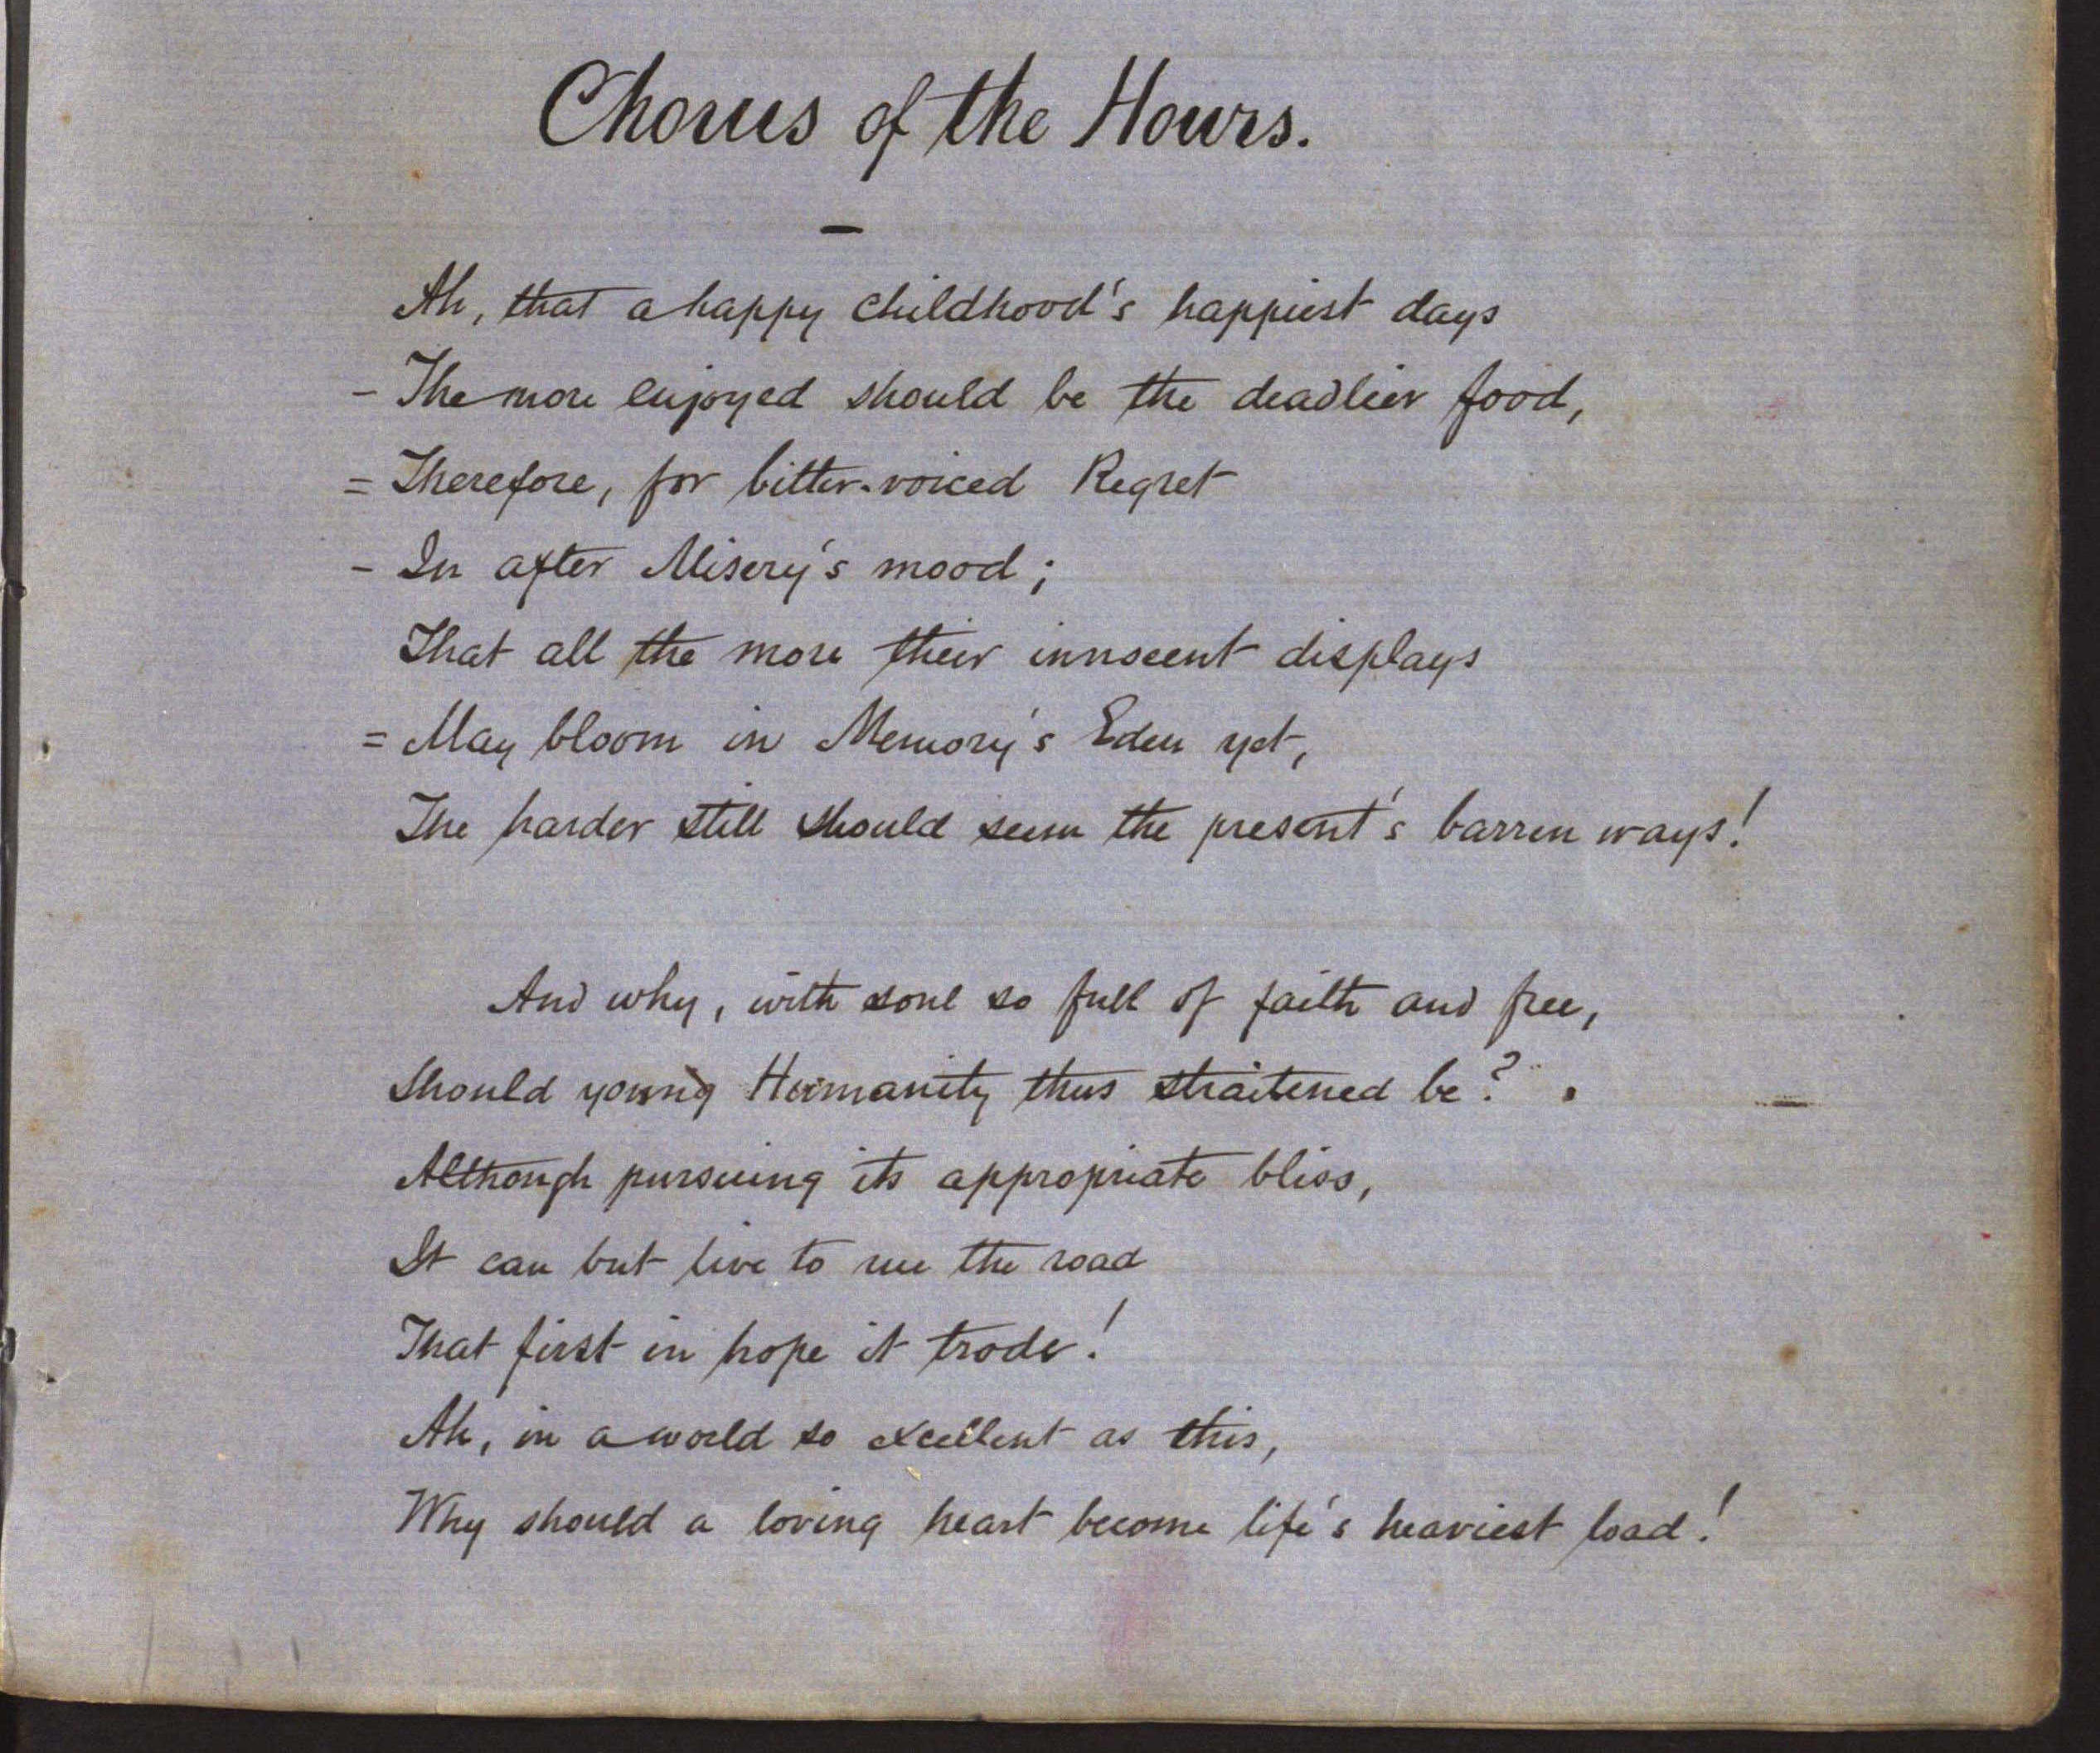 Chorus of the Hours.
—
Ah, that a happy childhood's happiest days
- The more enjoyed should be the deadlier food,
= Therefore, for bitter-voiced Regret
- In after Misery's mood;
That all the more their innocent displays
= May bloom in Memory's Eden yet,
The harder still should seem the present's barren ways!
And why, with soul so full of faith and free,
Should young Humanity thus straitened be?
Although pursuing its appropriate bliss,
It can but live to rue the road
That first in hope it trode!
Ah, in a world so excellent as this,
Why should a loving heart become life's heaviest load!